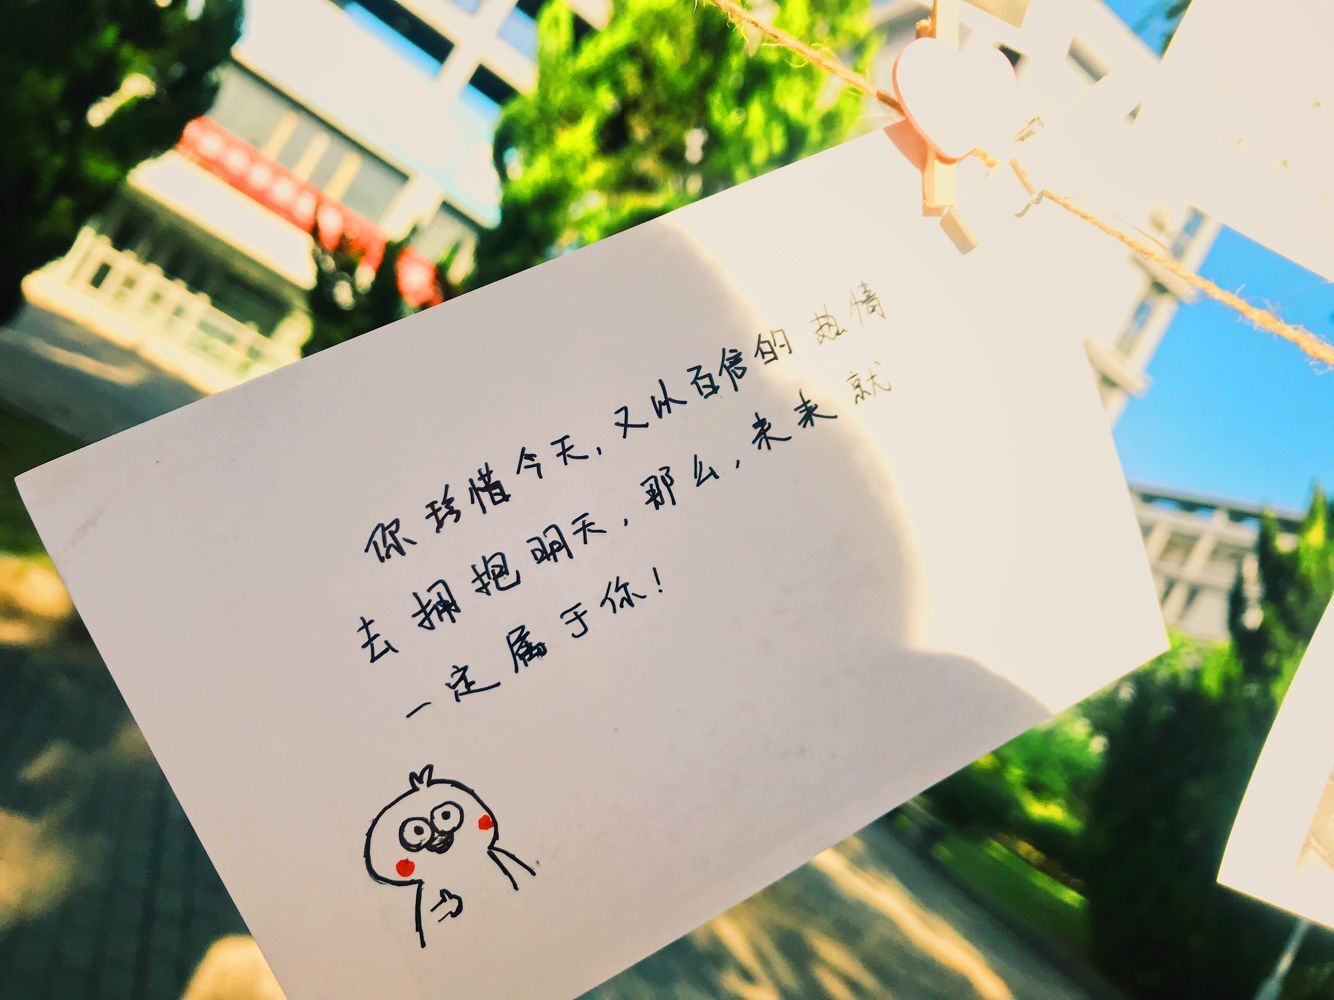 你珍惜今天，又以百倍的热情
去拥抱明天，那么，未来就
一定属于你！